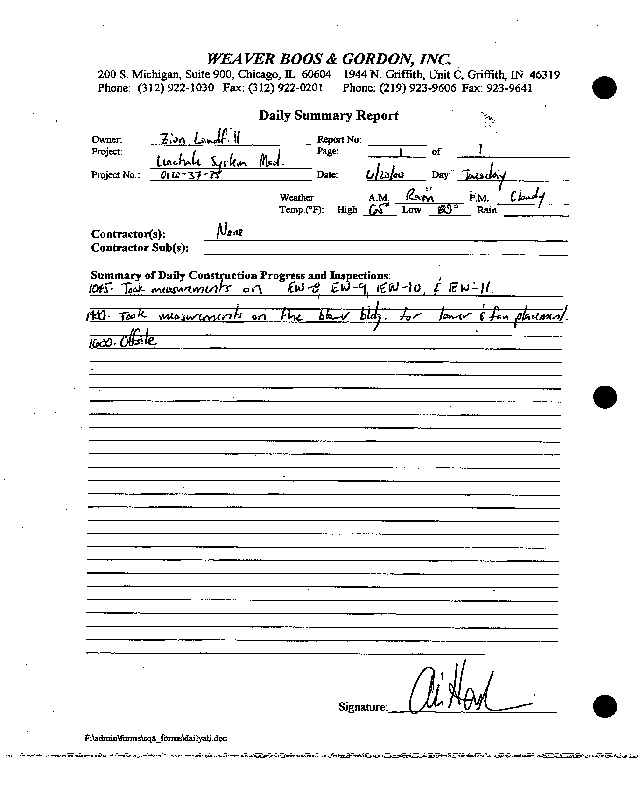 WEAVER BOOS & GORDON, INC.
200 S. Michigan, Suite 900, Chicago, IL 60604 1944 N. Griffith, Unit C, Griffith, IN 46319
Phone: (312) 922-1030 Fax: (312) 922-0201 Phone: (219) 923-9606 Fax: 923-9641
Daily Summary Report
Owner: Zion Landfill Report No:
Project: Leachate System Mod. Page: 1 of 1
Project No.: 0120-37-25 Date: 6/20/00 Day Tuesday
Weather A.M. Rain P.M. Cloudy
Temp.(°F): High 65° Low Rain
Contractor(s): None
Contractor Sub(s):
Summary of Daily Construction Progress and Inspections:
1045- Took measurements on EW-8, EW-9, IEW-10, & IEW-11.
Took measurements on the blower bldg. for lower & fan placement.
1600- Offsite
Signature:
F:\admin\forms\cqa_forms\dailyali.doc